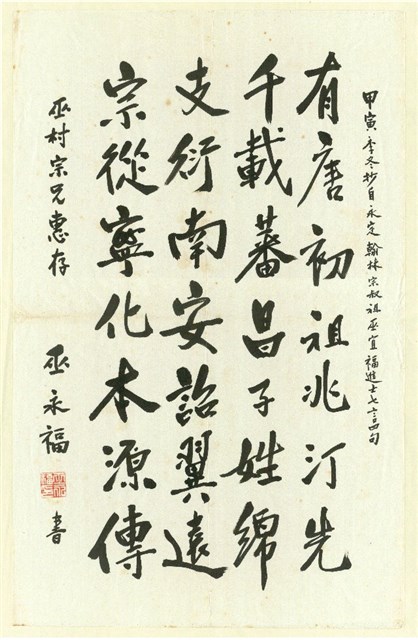 甲寅季冬抄自永定翰林宗叔祖巫宜福進士七言四句
有唐初祖兆汀先
千載蕃昌子姓綿
支衍南安詒翼遠
宗從寧化本源傳
巫村宗兄惠存
巫永福
書